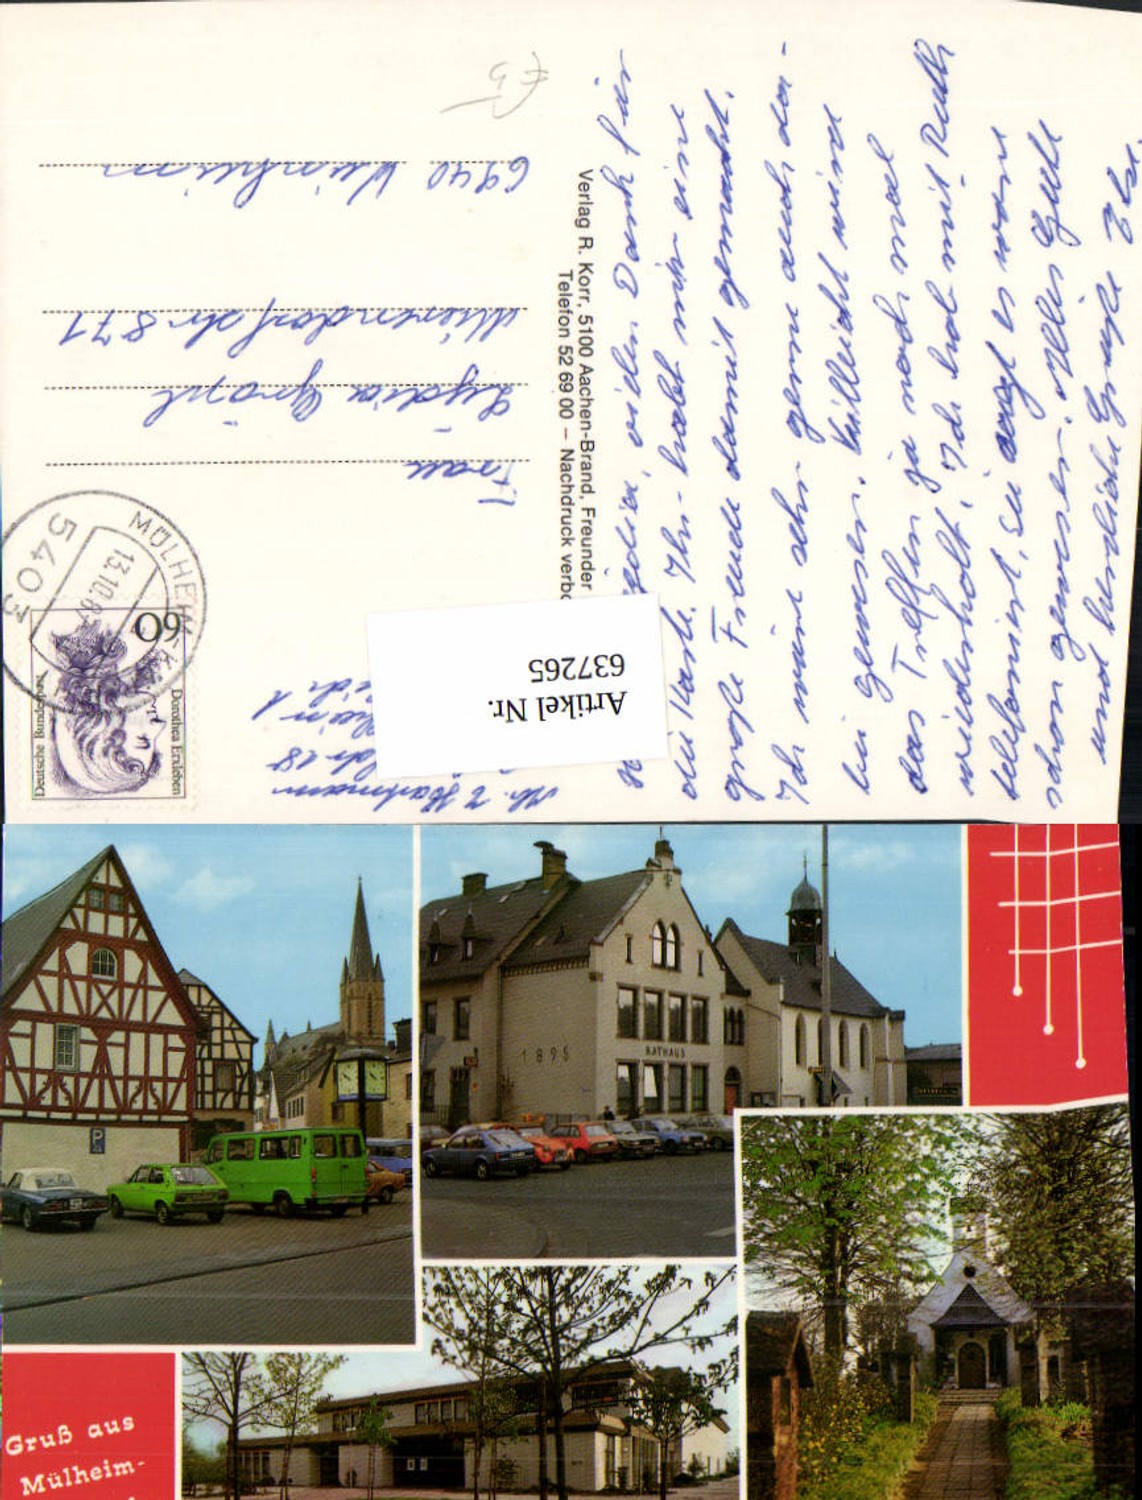 Liebe Lydia, vielen Dank für
die Karte. Ihr habt mir eine
große Freude damit gemacht.
Ich wäre sehr gerne auch da-
bei gewesen. Vielleicht wird
das Treffen ja noch mal
wiederholt. Ich hab mit Ruth
telefoniert, sie sagt es wäre
schön gewesen. Alles Gute
und herzliche Grüße
Verlag R. Korr, 5100 Aachen-Brand, Freunder
Telefon 52 69 00 – Nachdruck verbo
Hartmann
Frau
Lydia
6940 Weinheim
MÜLHEIM-K
13.10.87
5403
Deutsche Bundespost
60
Dorothea Erxleben
Artikel Nr.
637265
P
1895
RATHAUS
Gruß aus
Mülheim-